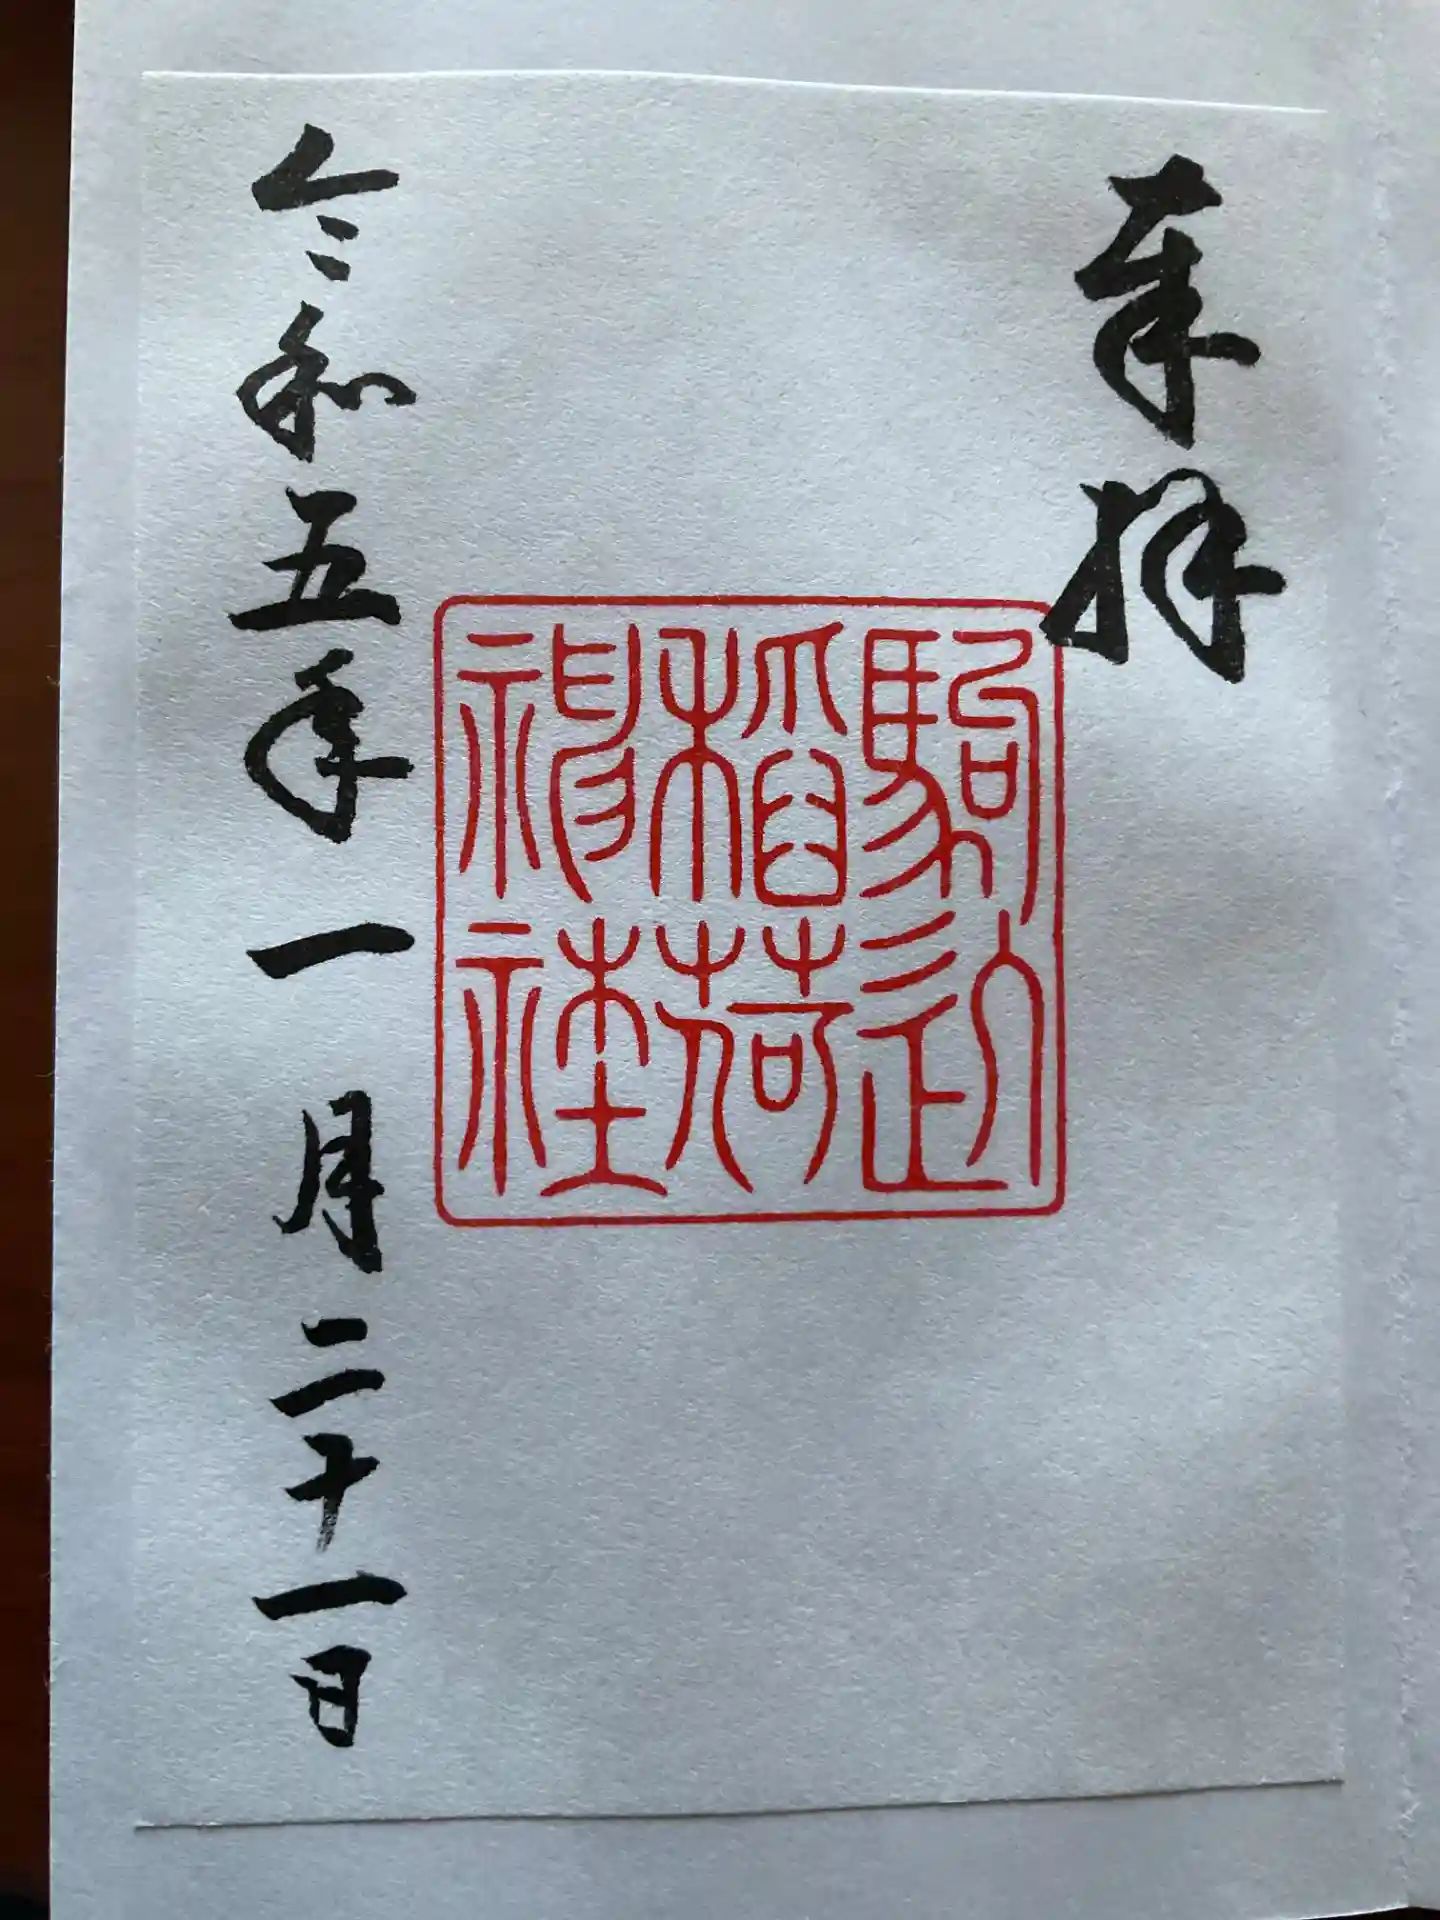 奉拝
駒込
稻荷
神社
令和五年一月二十一日